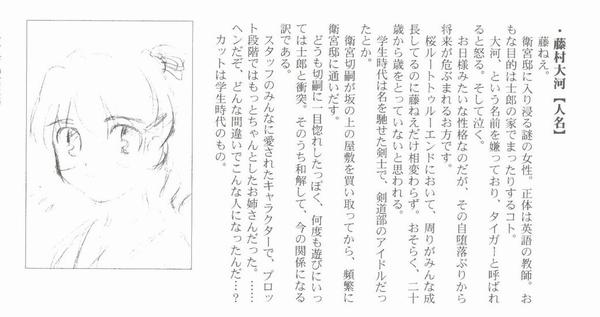 ・藤村大河【人名】
藤ねえ。
衛宮邸に入り浸る謎の女性。正体は英語の教師。お
もな目的は士郎の家でまったりするコト。
大河、という名前を嫌っており、タイガーと呼ばれ
ると怒る。そして泣く。
お日様みたいな性格なのだが、その自堕落ぶりから
将来が危ぶまれるお方です。
桜ルートトゥルーエンドにおいて、周りがみんな成
長してるのに藤ねえだけ相変わらず。おそらく、二十
歳から歳をとっていないと思われる。
学生時代は名を馳せた剣士で、剣道部のアイドルだっ
たとか。
衛宮切嗣が坂の上の屋敷を買い取ってから、頻繁に
衛宮邸に通いだす。
どうも切嗣に一目惚れしたっぽく、何度も遊びにいっ
ては士郎と衝突。そのうち和解して、今の関係になる
訳である。
スタッフのみんなに愛されたキャラクターで、プロッ
ト段階ではもっとちゃんとしたお姉さんだった。……
ヘンだぞ、どんな間違いでこんな人になったんだ…?
カットは学生時代のもの。